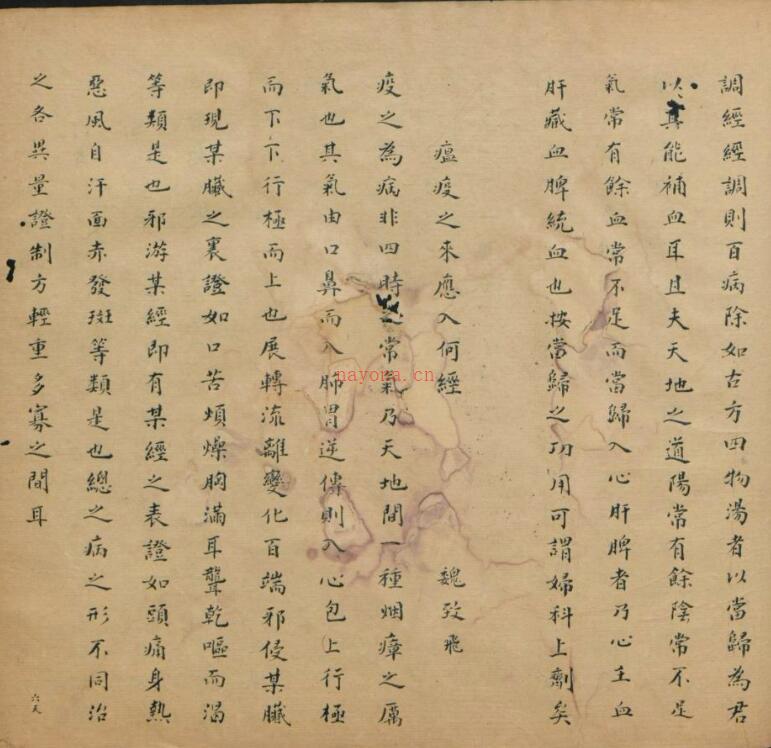 調經經調則百病除如古方四物湯者以當歸為君
以其能補血耳且夫天地之道陽常有餘陰常不足
氣常有餘血常不足而當歸入心肝脾者乃心主血
肝藏血脾統血也按當歸之功用可謂婦科上劑矣
瘟疫之來應入何經
魏孜飛
疫之為病非四時之常氣乃天地間一種烟瘴之厲
氣也其氣由口鼻而入肺胃逆傳則入心包上行極
而下下行極而上也展轉流離變化百端邪侵某臟
即現某臟之裏證如口苦煩燥胸滿耳聾乾嘔而渴
等類是也邪游某經即有某經之表證如頭痛身熱
惡風自汗面赤發斑等類是也總之病之形不同治
之各異量證制方輕重多寡之間耳
nayona.cn